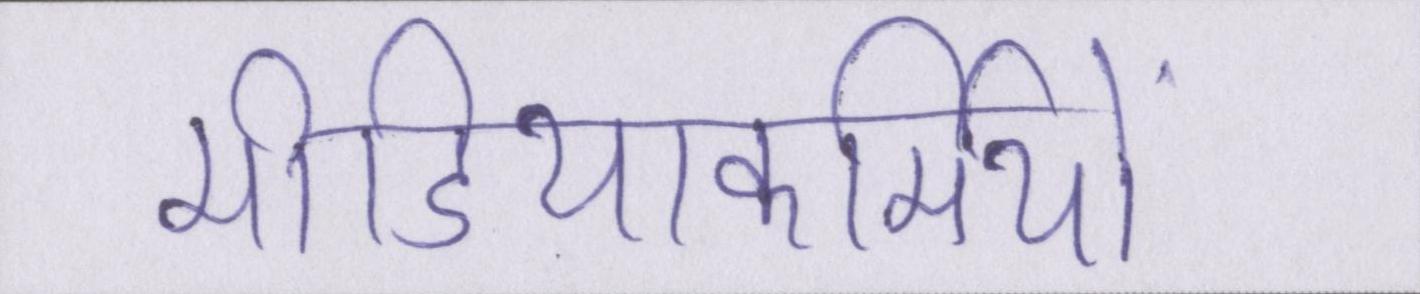 मीडियाकर्मियों